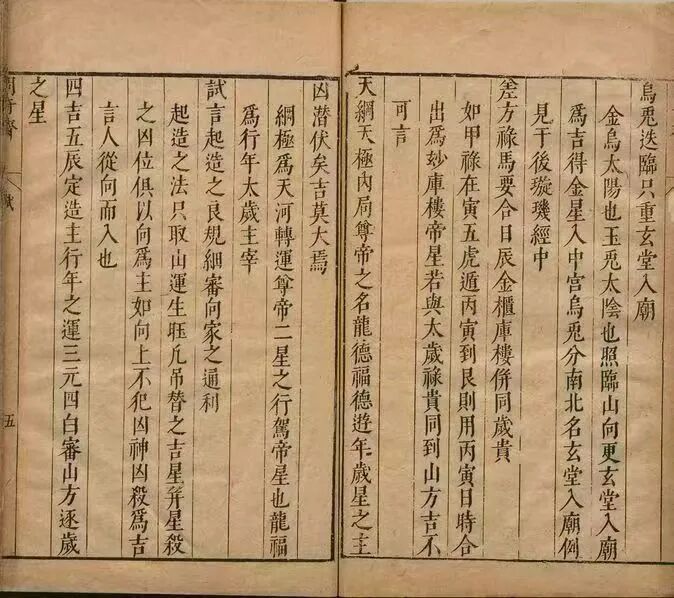 烏兎迭臨只重玄堂入廟
金烏太陽也玉兎太陰也照臨山向更玄堂入廟
爲吉得金星入中宫烏兎分南北名玄堂入廟例
見于後璇璣經中
差方祿馬要合日辰金櫃庫樓併同歲貴
如甲祿在寅五虎遁丙寅到艮則用丙寅日時合
出爲玅庫樓帝星若與太歲祿貴同到山方吉不
可言
天網天極内局尊帝之名龍德福德遊年歲星之主
凶潜伏矣吉莫大焉
網極爲天河轉運尊帝二星之行駕帝星也龍福
爲行年太歲主宰
試言起造之良規細審向家之通利
起造之法只取山運生旺凢吊替之吉星并星殺
之凶位俱以向爲主如向上不犯凶神凶殺爲吉
言人從向而入也
四吉五辰定造主行年之運三元四白審山方逐歲
之星
五